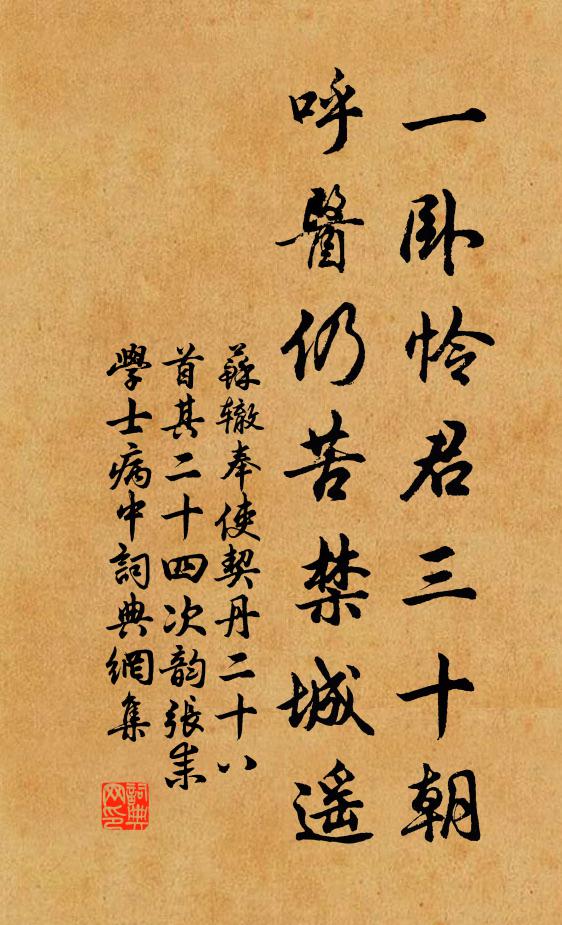 一卧怜君三十朝
呼醫仍苦禁城遥
蘇辙奉使契丹二十八
首其二十四次韵張耒
學士病中詞典網集
詞典
网印